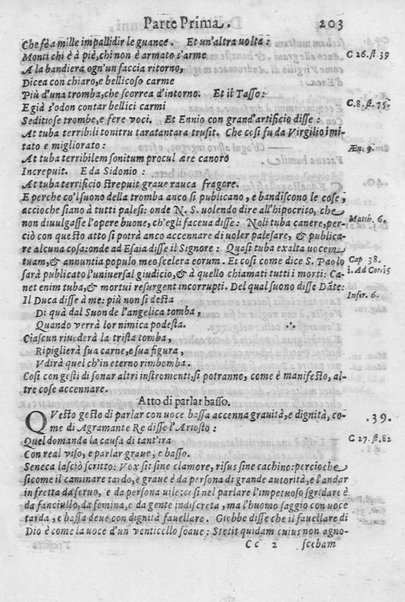 Parte Prima. 203
Che fè a mille impallidir le guance. Et un'altra uolta:
Monti chi è à piè, chi non è armato s'arme C 26. st. 39
A la bandiera ogn'un faccia ritorno,
Dicea con chiaro, e bellicoso carme
Più d'una tromba, che scorrea d'intorno. Et il Tasso:
E già s'odon contar bellici carmi C. 8. st. 75.
Seditiose trombe, e fere voci. Et Ennio con grand'artificio disse:
At tuba terribili tonitru taratantara trusit. Che così fu da Virgilio imi-
tato e migliorato:
At tuba terribilem sonitum procul ære canoro Æn. 9.
Increpuit. E da Sidonio:
At tuba terrificio strepuit graue rauca fragore.
E perche co'l suono della tromba anco si publicano, e bandiscono le cose,
accioche siano à tutti palesi: onde N. S. uolendo dire all'hipocrito, che
non diuulgasse l'opere buone, ch'egli faceua disse: Noli tuba canere, per- Matth. 6.
ciò con questo atto si potrà anco accennare di uoler palesare, & publica-
re alcuna cosa: onde ad Esaia disse il Signore: Quasi tuba exalta uocem
tuam, & annuntia populo meo scelera eorum. Et così come dice S. Paolo Cap 38.
sarà publicato l'uniuersal giudicio, & à quello chiamati tutti i morti: Ca- 1. Ad Cor 15
net enim tuba, & mortui resurgent incorrupti. Del qual suono disse Dãte:
Il Duca disse à me: più non si desta Infer. 6.
Di quà dal Suon de l'angelica tomba,
Quando verrà lor nimica podesta.
Ciascun riuederà la trista tomba,
Ripiglierà sua carne, e sua figura,
Vdirà quel ch'in eterno rimbomba.
Così con gesti di sonar altri instromenti, si potranno, come è manifesto, al-
tre cose accennare.
Atto di parlar basso.
QVesto gesto di parlar con uoce bassa accenna grauità, e dignità, co- 39.
me di Agramante Re disse l'Ariosto:
Quel domanda la causa di tant'ira C 27. st. 82
Con real viso, e parlar graue, e basso.
Seneca lasciò scritto: Vox sit sine clamore, risus sine cachino: percioche
sicome il caminare tardo, e graue è da persona di grande autorità, e l'andar
in fretta da seruo, e da persona uile: così nel parlare l'impetuoso sgridare è
da fanciullo, da femina, e da gente indiscreta, ma l'huomo saggio con uoce
tarda, e bassa deue con dignità fauellare. Giobbe disse che il fauellare di
Dio è come la uoce d'un venticello soaue: Stetit quidam cuius non agno-
Cc 2 scebam